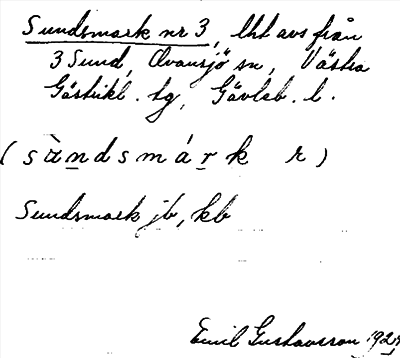 Sundsmark nr 3, lht avs från
3 Sund, Ovansjö sn, Västra
Gästrikl. tg, Gävleb. l.
(sùndsmárk r)
Sundsmark jb, kb
Emil Gustavsson 1924